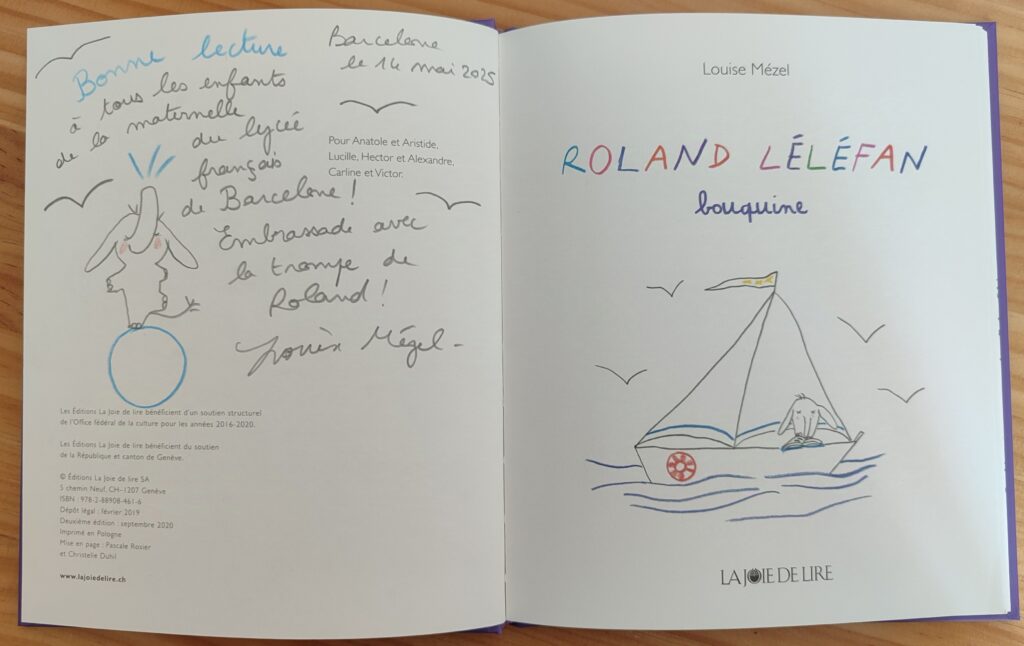 Bonne lecture
à tous les enfants
de la maternelle
du lycée
français
de Barcelone !
Embrassade avec
la trompe de
Roland !
Louise Mézel
Barcelone
le 14 mai 2025
Pour Anatole et Aristide,
Lucille, Hector et Alexandre,
Carline et Victor.
Les Éditions La Joie de lire bénéficient d'un soutien structurel
de l'Office fédéral de la culture pour les années 2016-2020.
Les Éditions La Joie de lire bénéficient du soutien
de la République et canton de Genève.
© Éditions La Joie de lire SA
5 chemin Neuf, CH–1207 Genève
ISBN : 978-2-88908-461-6
Dépôt légal : février 2019
Deuxième édition : septembre 2020
Imprimé en Pologne
Mise en page : Pascale Rosier
et Christelle Duhil
www.lajoiedelire.ch
Louise Mézel
ROLAND LÉLÉFAN
bouquine
LA JOIE DE LIRE